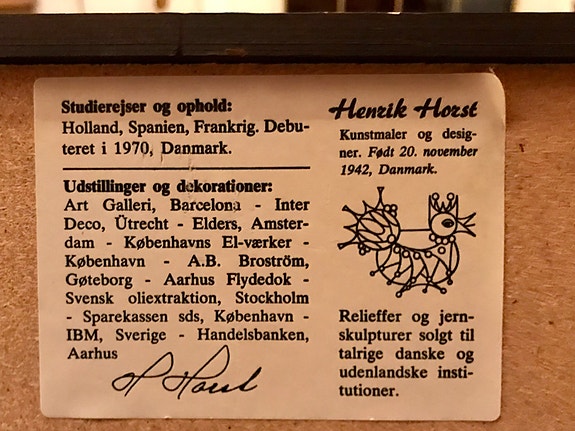 Studierejser og ophold:
Holland, Spanien, Frankrig. Debu-
teret i 1970, Danmark.
Udstillinger og dekorationer:
Art Galleri, Barcelona - Inter
Deco, Ütrecht - Elders, Amster-
dam - Københavns El-værker -
København - A.B. Broström,
Gøteborg - Aarhus Flydedok -
Svensk oliextraktion, Stockholm
- Sparekassen sds, København -
IBM, Sverige - Handelsbanken,
Aarhus
H Horst
Henrik Horst
Kunstmaler og desig-
ner. Født 20. november
1942, Danmark.
Relieffer og jern-
skulpturer solgt til
talrige danske og
udenlandske insti-
tutioner.